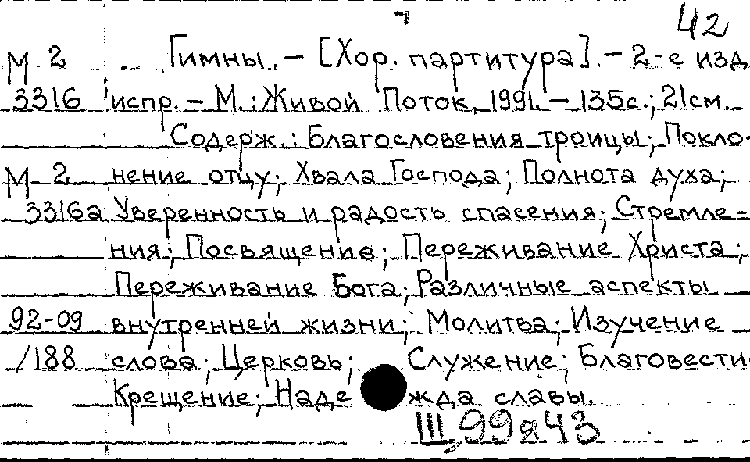 42
М 2 Гимны. – [Хор. партитура]. – 2-е изд
3316 испр. – М.: Живой Поток, 1991. – 135с.; 21см.
Содерж.: Благословения троицы; Покло-
М 2 нение отцу; Хвала Господа; Полнота духа;
3316а Уверенность и радость спасения; Стремле-
ния; Посвящение; Переживание Христа;
Переживание Бога; Различные аспекты
92-09 внутренней жизни; Молитва; Изучение
/188 слова; Церковь; Служение; Благовести
Крещение; Надежда славы.
III, 99я43